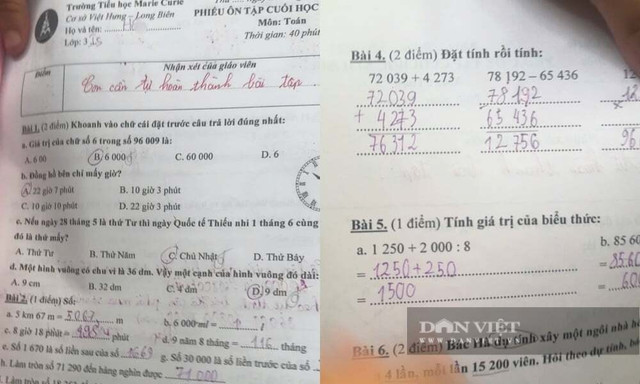 Trường Tiểu học Marie Curie
Cơ sở Việt Hưng - Long Biên
Họ và tên:
Lớp: 3
PHIẾU ÔN TẬP CUỐI HỌC
Môn: Toán
Thời gian: 40 phút
Điểm
Nhận xét của giáo viên
Con cần tự hoàn thành bài tập
Bài 1. (2 điểm) Khoanh vào chữ cái đặt trước câu trả lời đúng nhất:
a. Giá trị của chữ số 6 trong số 96 009 là:
A. 6 00
B. 6 000
C. 60 000
D. 6
b. Đồng hồ bên chỉ mấy giờ?
A. 22 giờ 7 phút
B. 10 giờ 3 phút
C. 10 giờ 10 phút
D. 22 giờ 3 phút
c. Nếu ngày 28 tháng 5 là thứ Tư thì ngày Quốc tế Thiếu nhi 1 tháng 6 cùng
đó là thứ mấy?
A. Thứ Tư
B. Thứ Năm
C. Chủ Nhật
D. Thứ Bảy
d. Một hình vuông có chu vi là 36 dm. Vậy một cạnh của hình vuông đó dài:
A. 9 cm
B. 32 dm
C. 4 dm
D. 9 dm
Bài 2. (1 điểm) Số:
a. 5 km 67 m = 5067 m
b. 6 000 ml =
c. 8 giờ 18 phút = 498 phút
d. 9 năm 8 tháng = 116 tháng
e. Số 1 670 là số liền sau của số 1669
g. Số 30 000 là số liền trước của số
h. Làm tròn số 71 290 đến hàng nghìn được 71 000
Bài 4. (2 điểm) Đặt tính rồi tính:
72 039 + 4 273
78 192 – 65 436
12
72039
78192
12
+ 4273
65 436
×
76312
12 756
96
Bài 5. (1 điểm) Tính giá trị của biểu thức:
a. 1 250 + 2 000 : 8
b. 85 60
= 1250 + 250
= 8560
= 1500
= 600
DÂN VIỆT
Bài 6. (2 điểm) Bác Hà dự tính xây một ngôi nhà
4 lần, mỗi lần 15 200 viên. Hỏi theo dự tính,